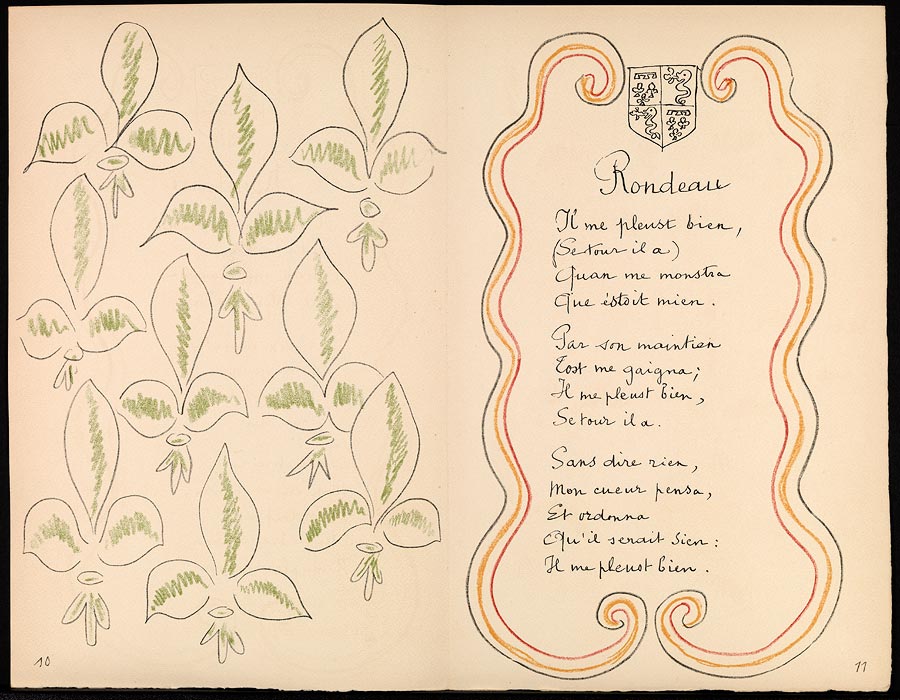 Rondeau
Il me pleust bien,
(Se tour il a)
Quan me monstra
Que éstoit mien.
Par son maintien
Tost me gaigna;
Il me pleust bien,
Se tour il a.
Sans dire rien,
Mon cueur pensa,
Et ordonna
Qu'il serait sien:
Il me pleust bien.
10
11